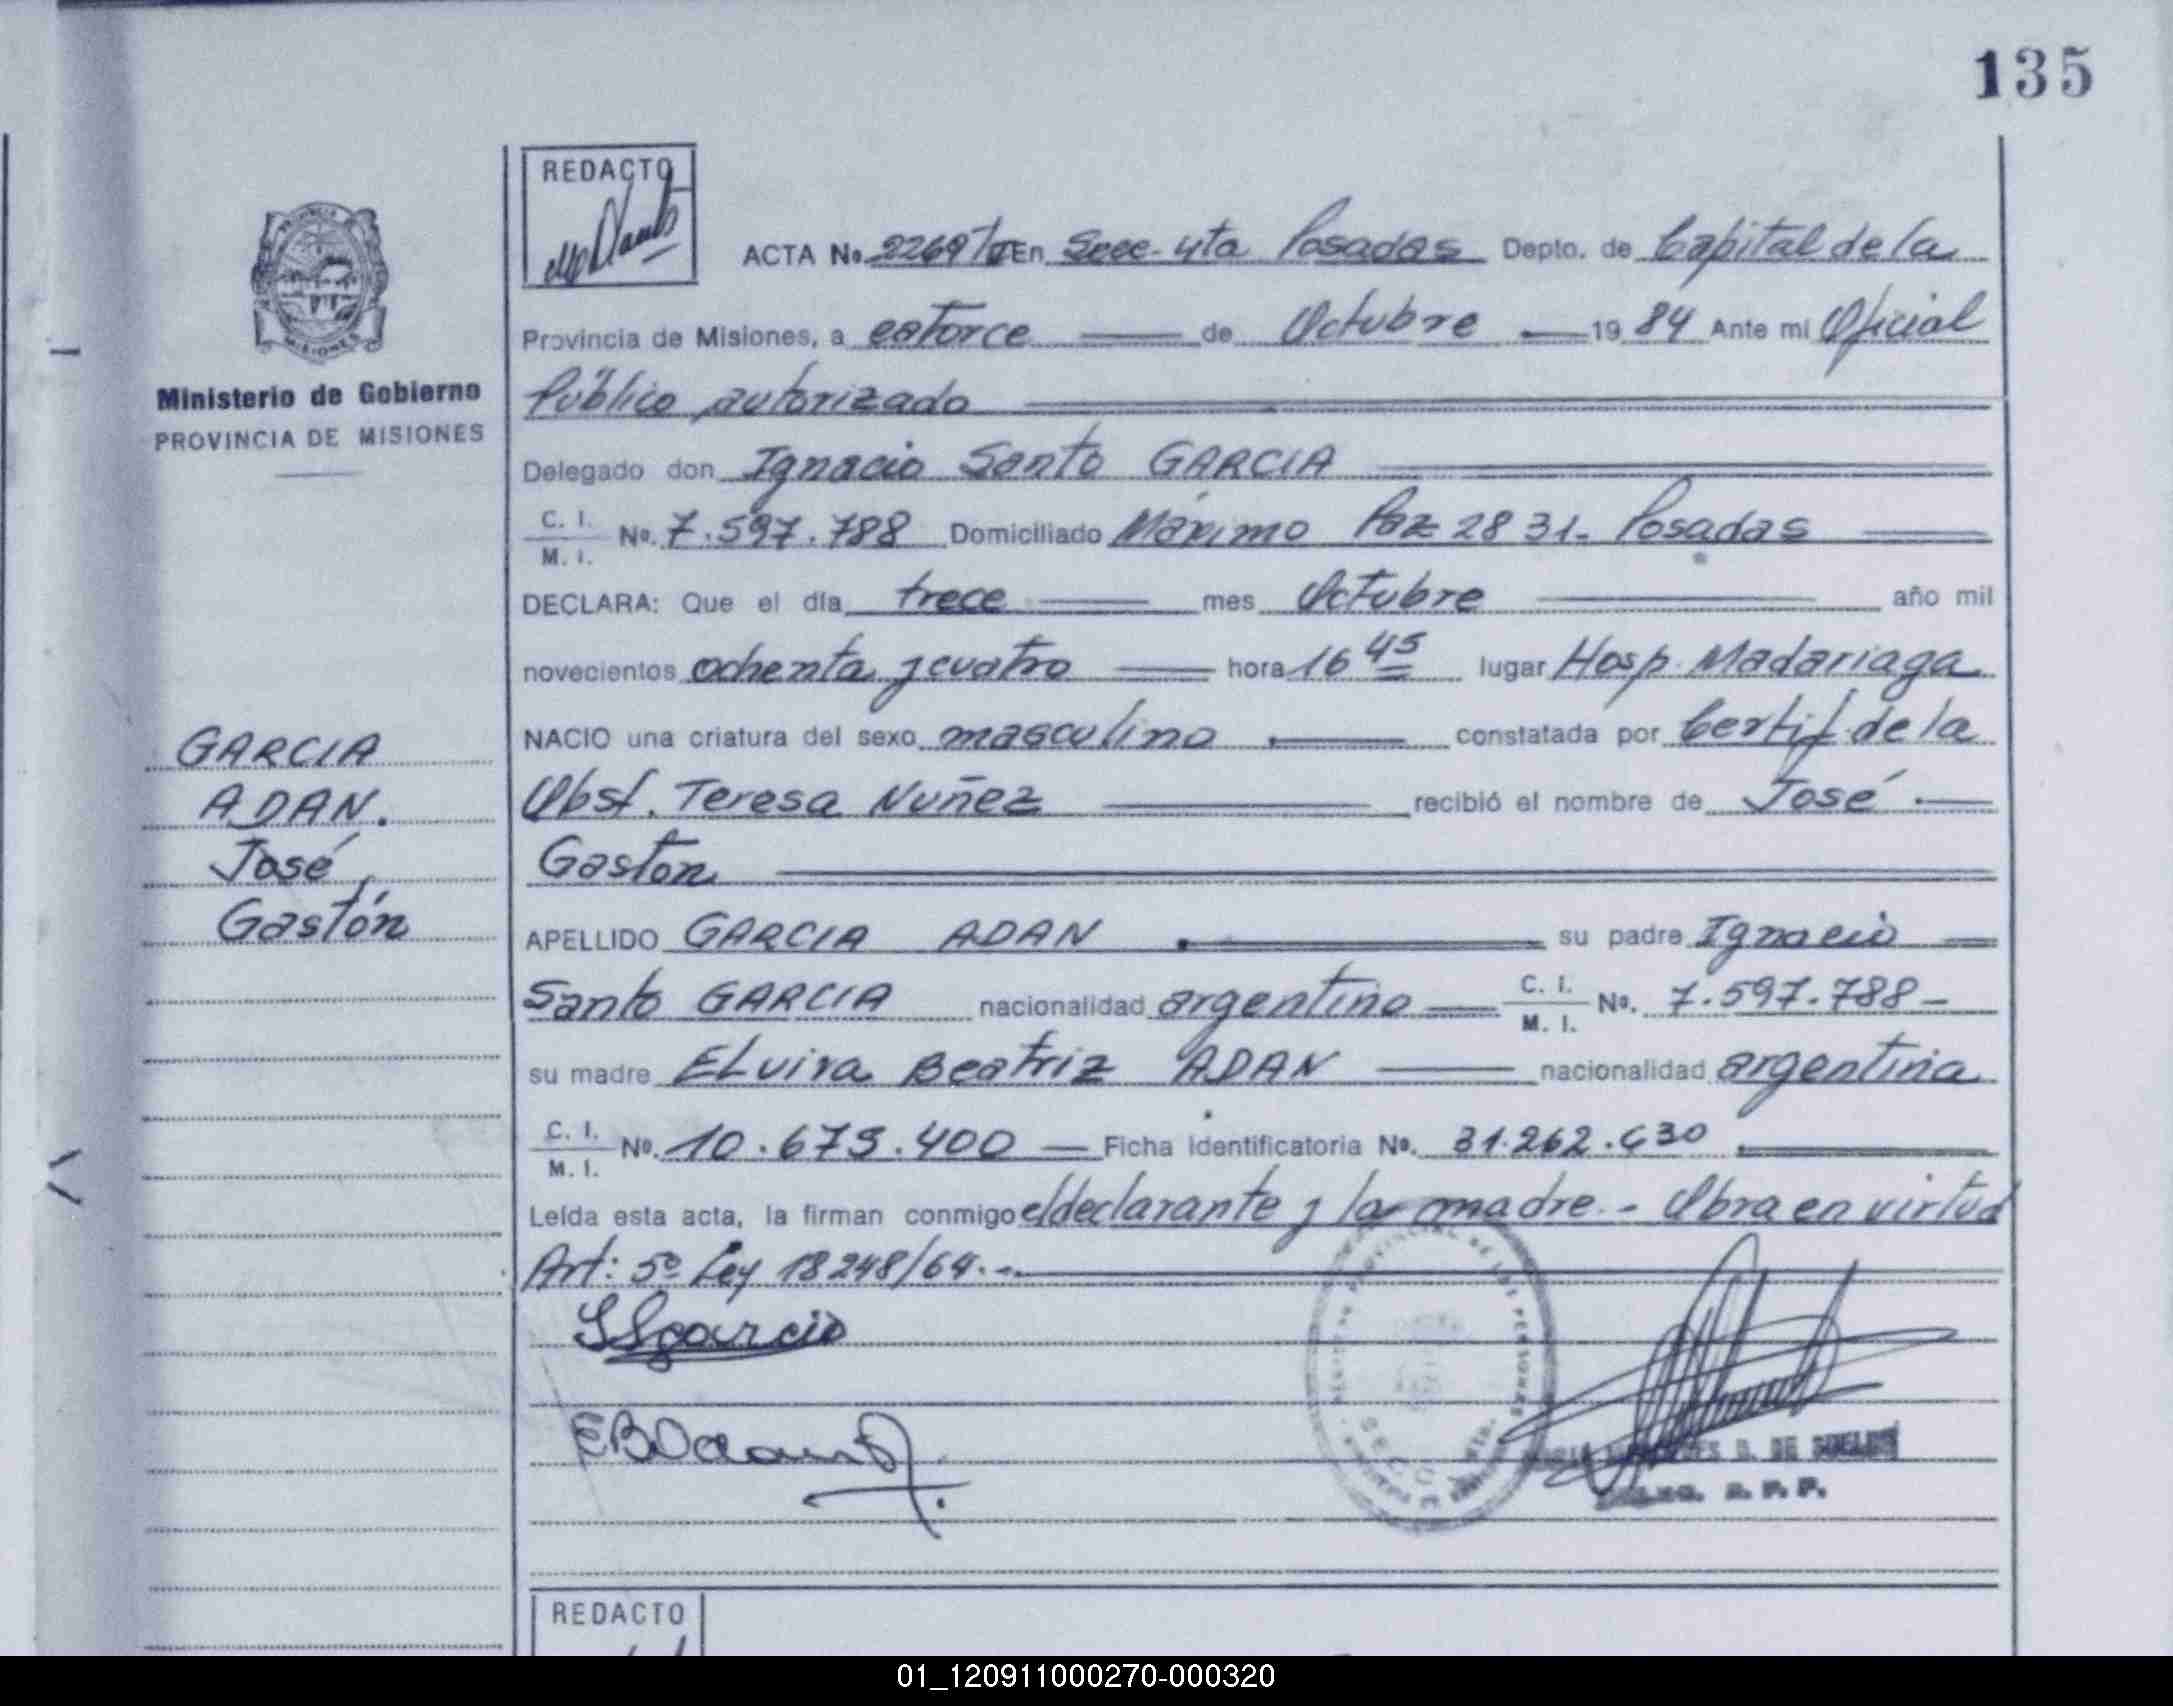 135
REDACTO
ACTA No. 2269 En Secc. 4ta Posadas Depto. de Capital de la
Provincia de Misiones, a catorce de Octubre 19 84 Ante mi Oficial
Público autorizado
Delegado don Ignacio Santo GARCIA
C. I.
M. I.
No. 7.597.788 Domiciliado Máximo Paz 2831- Posadas
DECLARA: Que el día trece mes Octubre año mil
novecientos ochenta y cuatro hora 16 45 lugar Hosp. Madariaga
NACIO una criatura del sexo masculino constatada por Certif. de la
Obst. Teresa Nuñez recibió el nombre de José
Gaston
APELLIDO GARCIA ADAN su padre Ignacio
Santo GARCIA nacionalidad argentino C. I.
M. I.
No. 7.597.788-
su madre ELvira Beatriz ADAN nacionalidad argentina
C. I.
M. I.
No. 10.675.400 Ficha identificatoria No. 31.262.630
Leída esta acta, la firman conmigo el declarante y la madre.- Obra en virtud
Art: 5º Ley 18248/69.-
PROVINCIA
MISIONES
Ministerio de Gobierno
PROVINCIA DE MISIONES
GARCIA
ADAN.
José
Gastón
REDACTO
01_120911000270-000320